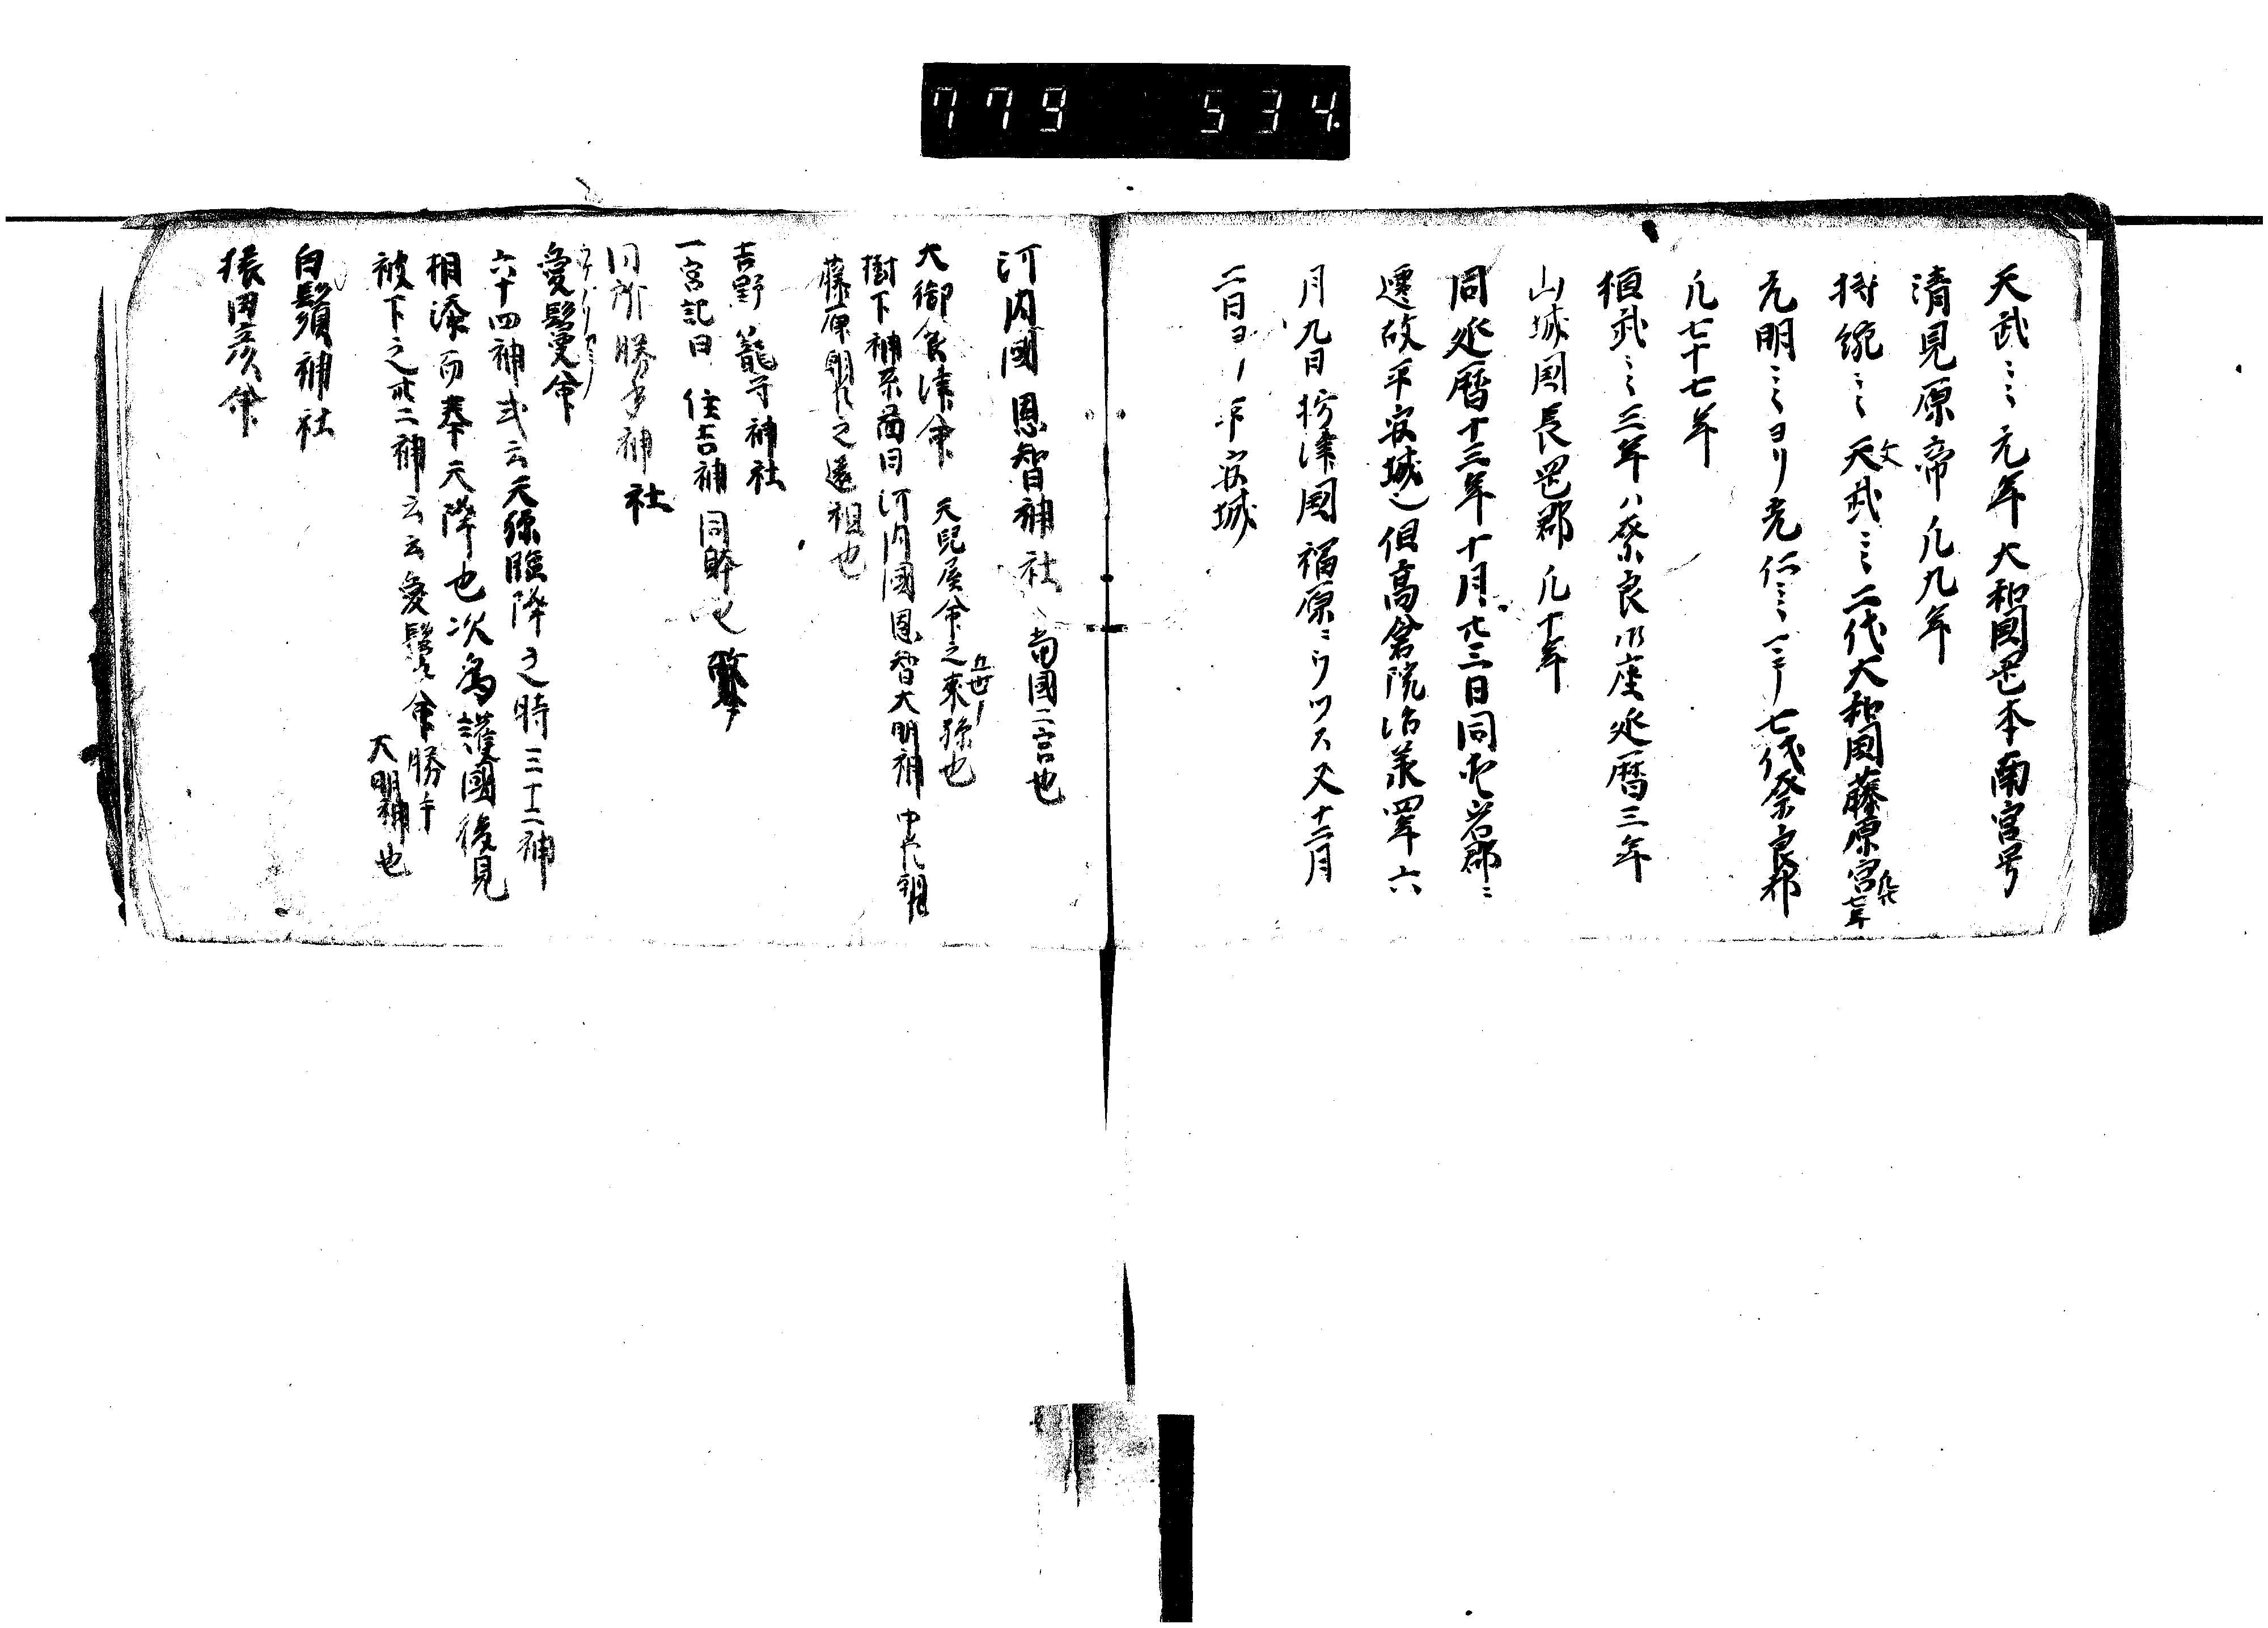 779 534
天武ミミ元年大和國岡本南宮号
清見原帝凡九年
持統ミミ 文天武ミミ二代大和国藤原宮 七年
元明ミミヨリ光仁ミミ 七代奈良都
凡七十七年
桓武ミミ三年ハ奈良ニ座延暦三年
山城国長岡郡凡十年
同延暦十三年十月廿三日同 郡ニ
遷故平安城也但高倉院治承四年六
月九日摂津国福原ニウツス又十二月
二日ヨー平安城
河内國恩智神社 當國二宮也
大御食津命 天児屋命之五世ー来孫也
樹下神系面曰河内國恩智大明神中代祖
藤原朝代之遠祖也
吉野籠守神社
一宮記曰 住吉神同躰也
同所勝手神社
愛鬘命
六十四神式云天孫臨降之時三十二神
相添而奉天降也次為護國後見
被下之廿二神云云愛鬘命勝手
大明神也
白鬚神社
猿田彦命